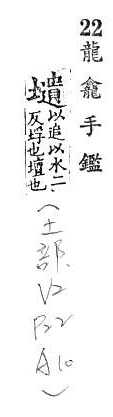 22龍龕手鑑
壝以追以水二
反埒也壇也
(土部
V2
P22
A10)